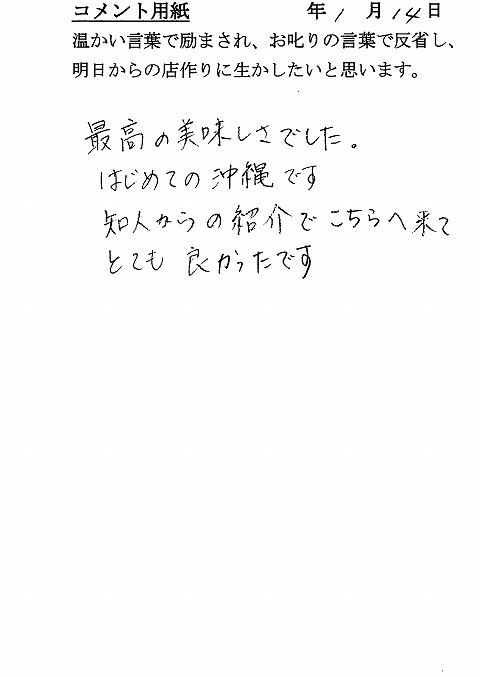 コメント用紙 年 1 月 14 日
温かい言葉で励まされ、お叱りの言葉で反省し、
明日からの店作りに生かしたいと思います。
最高の美味しさでした。
はじめての沖縄です
知人からの紹介でこちらへ来て
とても良かったです